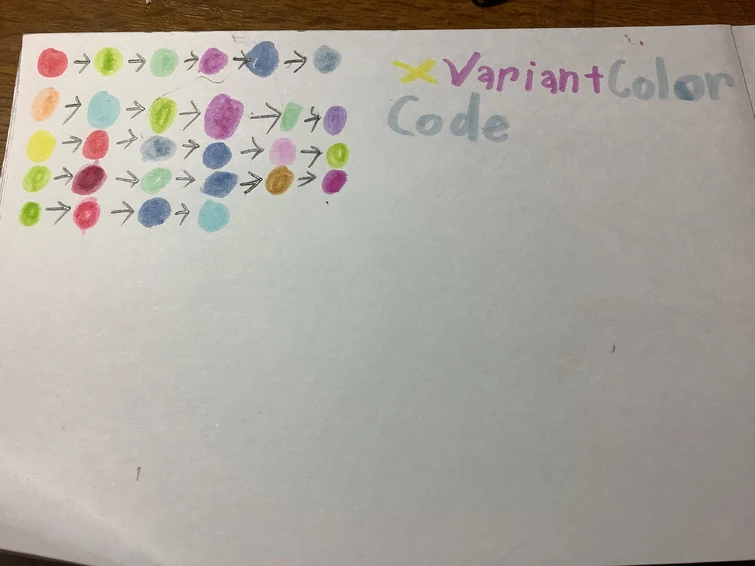 x Variant Color
Code